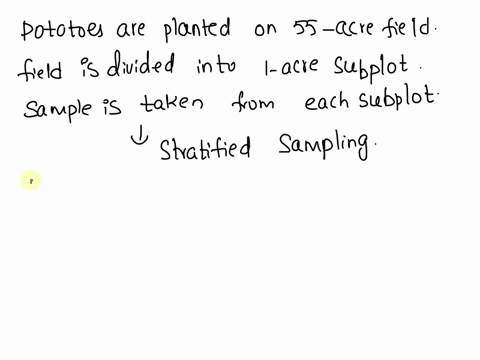 Pototoes are planted on 55-acre field.
field is divided into 1-acre subplot.
Sample is taken from each subplot.
↓ Stratified Sampling.